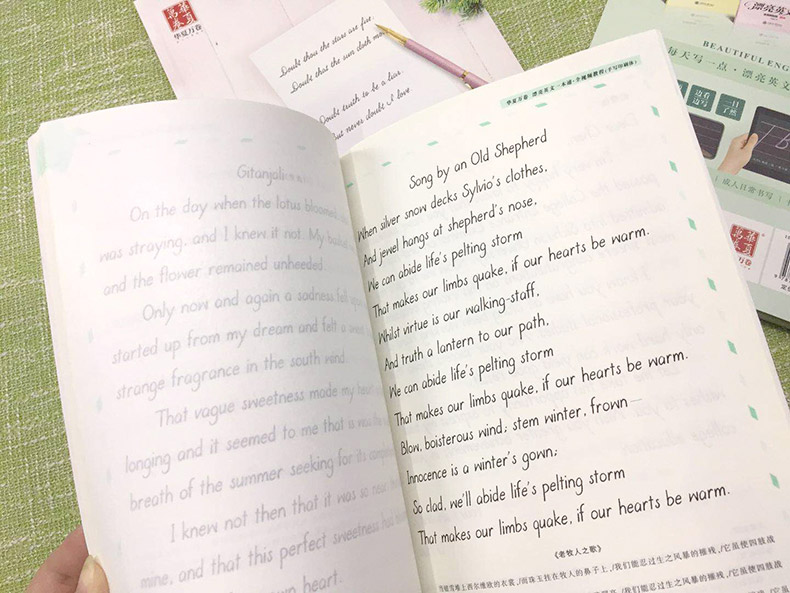 華夏
萬卷
华夏万卷
Doubt thou the stars are fire,
Doubt that the sun doth move
Doubt truth to be a liar,
But never doubt I love
漂亮英文
BEAUTIFUL ENG
每天写一点·漂亮英文
边看
边写
一目
了然
成人日常书写
華夏
萬卷
华夏万卷
定价
Gitanjali
On the day when the lotus bloomed
was straying, and I knew it not. My basket
and the flower remained unheeded
Only now and again a sadness fell upon
started up from my dream and felt a sweet
strange fragrance in the south wind.
That vague sweetness made my heart
longing and it seemed to me that
breath of the summer seeking for its
I knew not then that it was so near,
mine, and that this perfect sweetness had
own heart.
华夏万卷 漂亮英文一本通:全视频教程(手写印刷体)
Song by an Old Shepherd
When silver snow decks Sylvio's clothes,
And jewel hangs at shepherd's nose,
We can abide life's pelting storm
That makes our limbs quake, if our hearts be warm.
Whilst virtue is our walking-staff,
And truth a lantern to our path,
We can abide life's pelting storm
That makes our limbs quake, if our hearts be warm.
Blow, boisterous wind; stem winter, frown—
Innocence is a winter's gown;
So clad, we'll abide life's pelting storm
That makes our limbs quake, if our hearts be warm.
《老牧人之歌》
当银雪堆上西尔维欧的衣裳,/而珠玉挂在牧人的鼻子上,/我们能忍过生之风暴的摧残,/它虽使四肢战